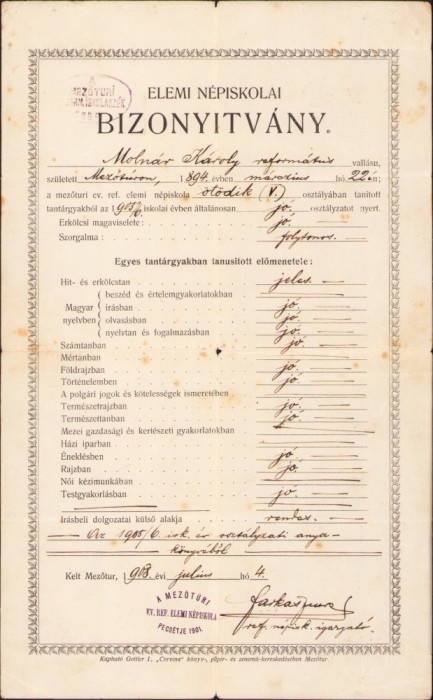 A
MEZŐTURI
ELEMI NÉPISKOLAI
BIZONYITVÁNY.
Molnár Károly református vallásu,
született Mezőturon, 1894. évben március hó 22-én;
a mezőturi ev. ref. elemi népiskola ötödik (V.) osztályában tanitott
tantárgyakból az 1905/6. iskolai évben általánosan jó. osztályzatot nyert.
Erkölcsi magaviselete: jó.
Szorgalma: folytonos.
Egyes tantárgyakban tanusitott előmenetele:
Hit- és erkölcstan jeles.
Magyar nyelvben
beszéd és értelemgyakorlatokban
irásban jó.
olvasásban jó.
nyelvtan és fogalmazásban jó.
Számtanban jó
Mértanban
Földrajzban jó.
Történelemben jó
A polgári jogok és kötelességek ismeretében
Természetrajzban jó.
Természettanban jó.
Mezei gazdasági és kertészeti gyakorlatokban
Házi iparban
Éneklésben jó
Rajzban jó.
Női kézimunkában
Testgyakorlásban jó.
Irásbeli dolgozatai külső alakja rendes.
Az 1905/6 isk. év osztályzati anya-
könyvéből
Kelt Mezőtur, 1908. évi julius hó 4.
A MEZŐTÚRI
EV. REF. ELEMI NÉPISKOLA
PECSÉTJE 1901.
Farkas
ref. népisk. igazgató.
Kapható Gotter I. „Corvina" könyv-, papir- és zenemű-kereskedésében Mezőtur.